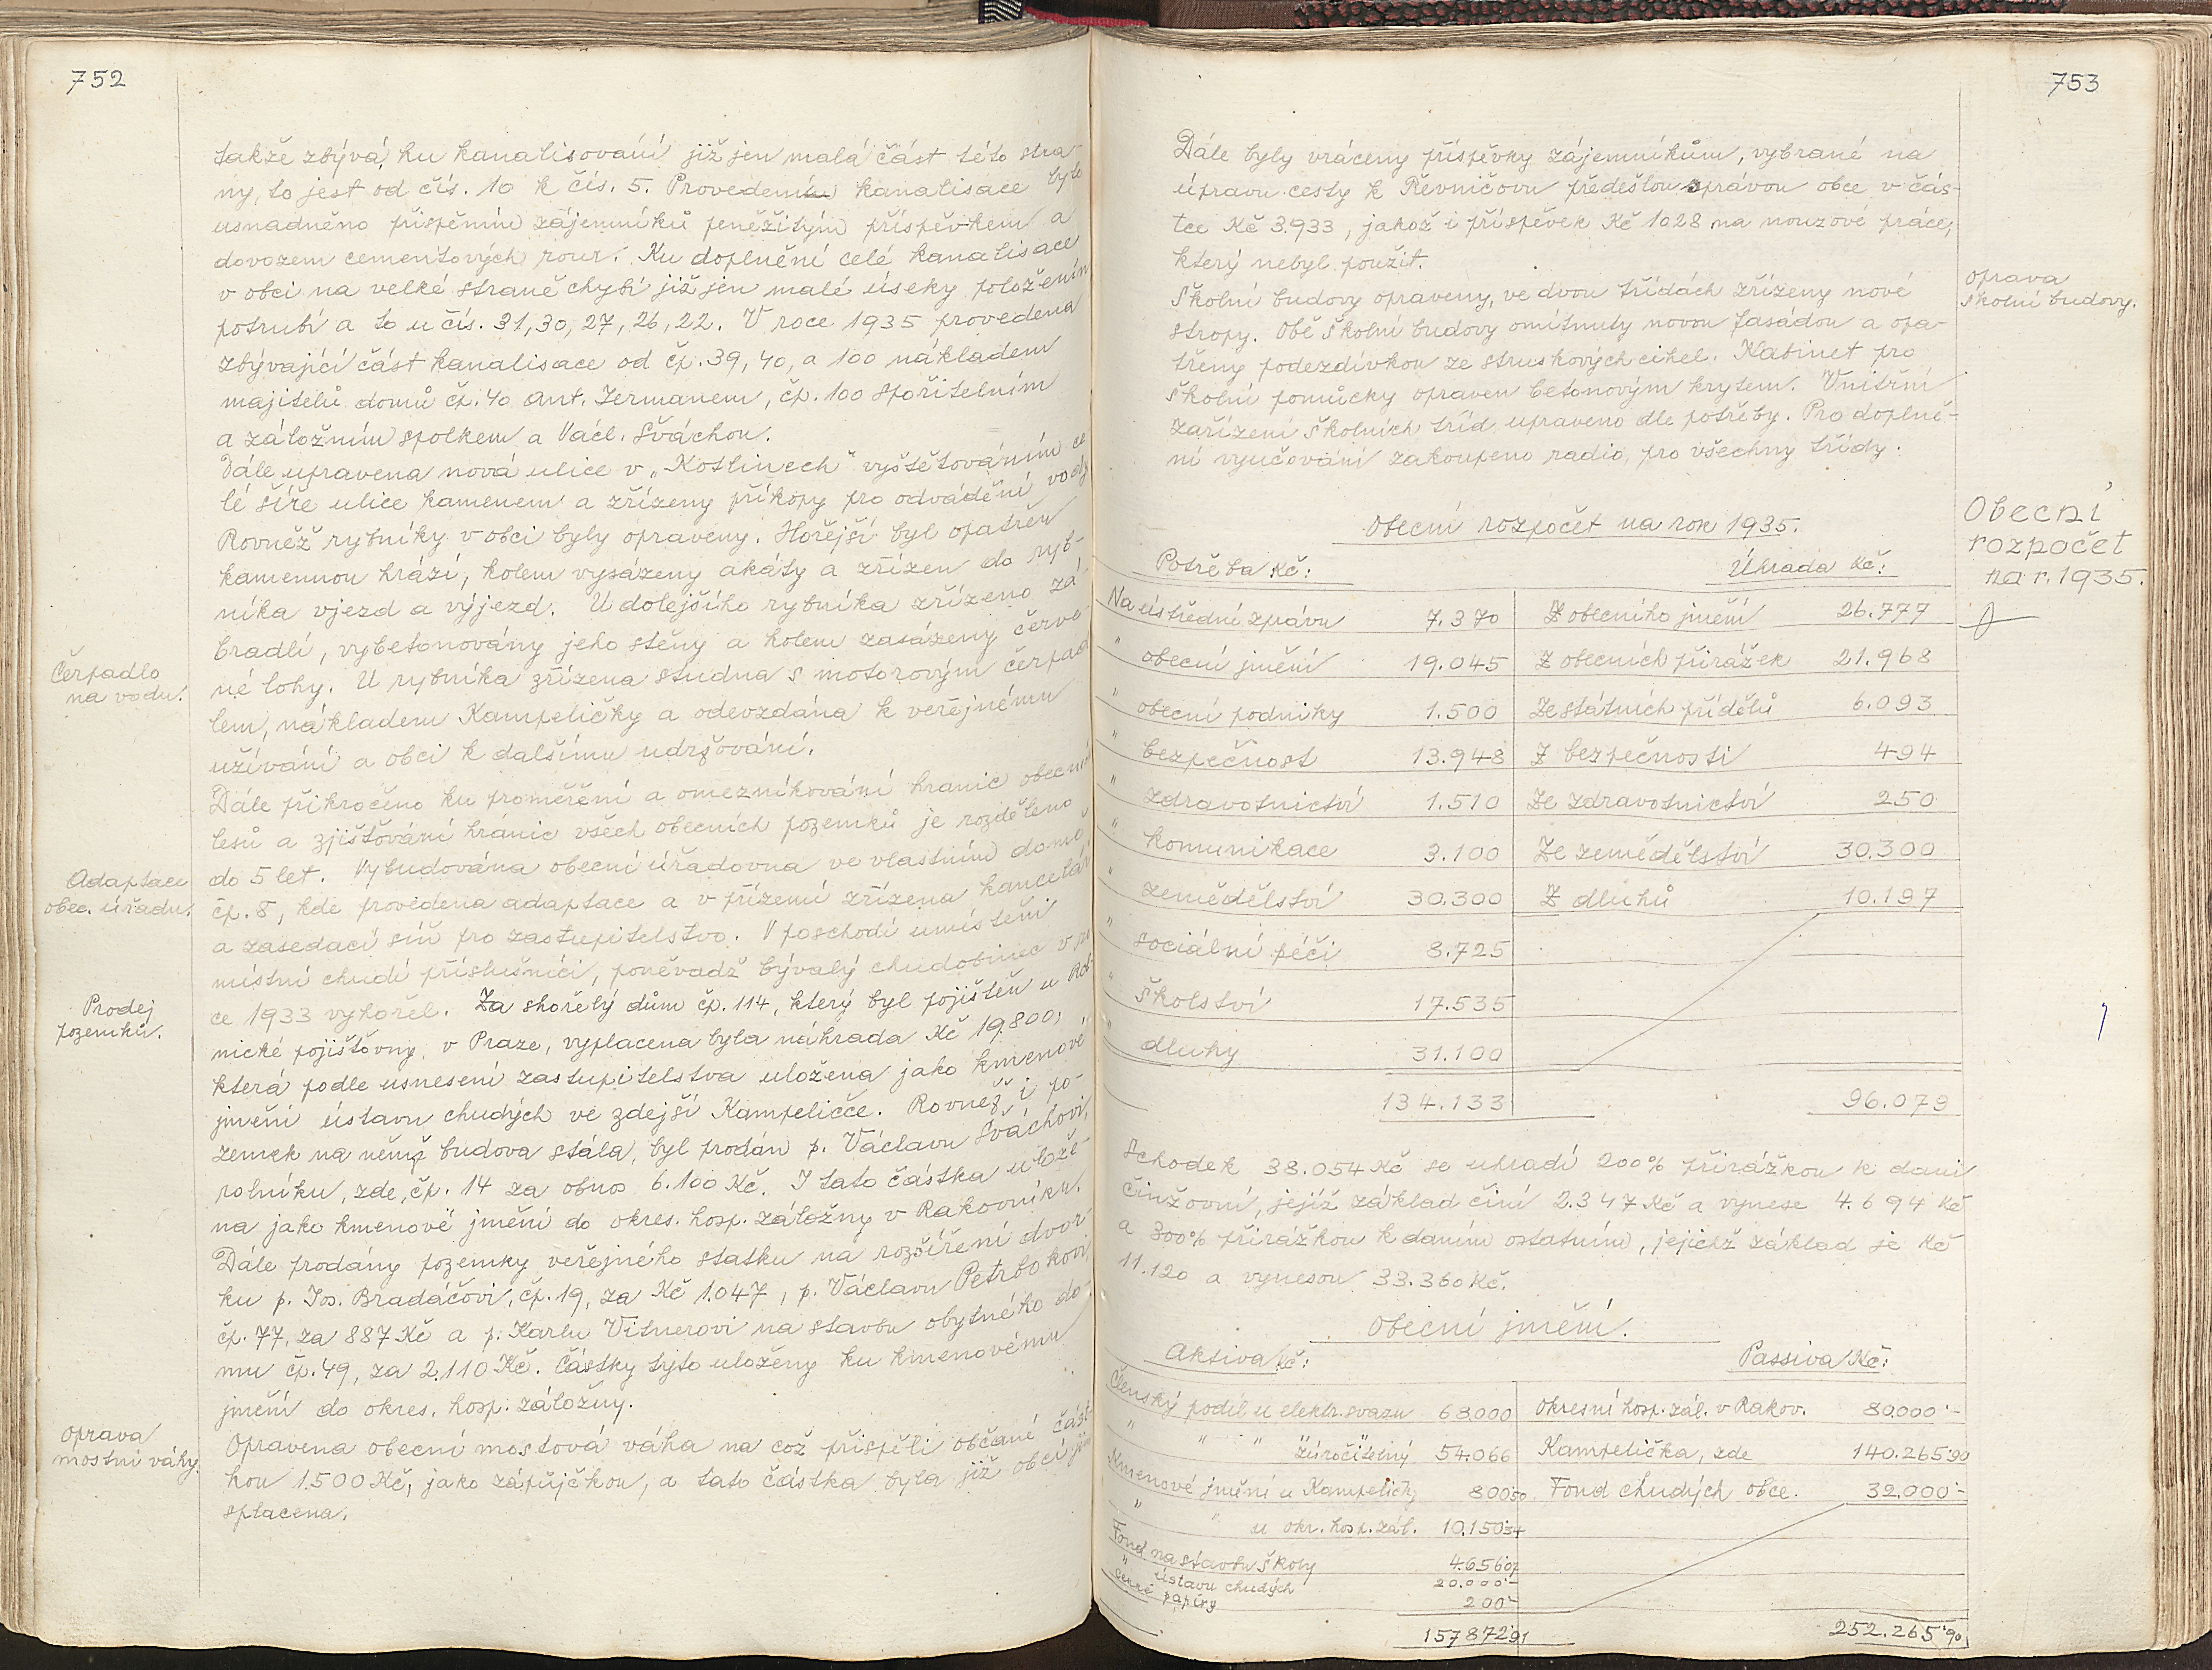 752
takže zbývá ku kanalisování již jen malá část této stra-
ny, to jest od čís. 10 k čís. 5. Provedením kanalisace bylo
usnadněno přispěním zájemníků peněžitým příspěvkem a
dovozem cementových rour. Ku doplnění celé kanalisace
v obci na velké straně chybí již jen malé úseky položením
potrubí a to u čís. 31, 30, 27, 26, 22. V roce 1935 provedena
zbývající část kanalisace od čp. 39, 40, a 100 nákladem
majitelů domů čp. 40 Ant. Jermanem, čp. 100 spořitelním
a záložním spolkem a Václ. Šváchou.
Dále upravena nová ulice v „Kotlinech" vyštětováním ce
lé šíře ulice kamenem a zřízeny příkopy pro odvádění vody
Rovněž rybníky v obci byly opraveny. Hořejší byl opatřen
kamennou hrází, kolem vysázeny akáty a zřízen do ryb-
níka vjezd a výjezd. U dolejšího rybníka zřízeno zá-
bradlí, vybetonovány jeho stěny a kolem zasázeny červe-
né lohy. U rybníka zřízena studna s motorovým čerpad
lem, nákladem Kampeličky a odevzdána k veřejnému
užívání a obci k dalšímu udržování.
Čerpadlo
na vodu.
Dále přikročeno ku proměření a omezníkování hranic obecní
lesů a zjišťování hranic všech obecních pozemků je rozděleno
do 5 let. Vybudována obecní úřadovna ve vlastním domě
čp. 8, kde provedena adaptace a v přízemí zřízena kancelář
a zasedací síň pro zastupitelstvo. V poschodí umístěni
místní chudí příslušníci, poněvadž bývalý chudobinec v ro
ce 1933 vyhořel. Za shořelý dům čp. 114, který byl pojištěn u Rol
nické pojišťovny, v Praze, vyplacena byla náhrada Kč 19.800,
která podle usnesení zastupitelstva uložena jako kmenové
jmění ústavu chudých ve zdejší Kampeličce. Rovněž i po-
zemek na němž budova stála, byl prodán p. Václavu Šváchovi,
rolníku, zde, čp. 14 za obnos 6.100 Kč. I tato částka ulože-
na jako kmenové jmění do okres. hosp. záložny v Rakovníku.
Adaptace
obec. úřadu.
Prodej
pozemků.
Dále prodány pozemky veřejného statku na rozšíření dvor-
ku p. Jos. Bradáčovi, čp. 19, za Kč 1.047, p. Václavu Petrbokovi,
čp. 77, za 887 Kč a p. Karlu Vitnerovi na stavbu obytného do-
mu čp. 49, za 2.110 Kč. Částky tyto uloženy ku kmenovému
jmění do okres. hosp. záložny.
Opravena obecní mostová váha na což přispěli občané část-
kou 1.500 Kč, jako zápůjčkou, a tato částka byla již obcí jim
splacena.
oprava
mostní váhy.
753
Dále byly vráceny příspěvky zájemníkům, vybrané na
úpravu cesty k Řevničovu předešlou správou obce v čás-
tce Kč 3.933, jakož i příspěvek Kč 1028 na nouzové práce,
který nebyl použit.
Školní budovy opraveny, ve dvou třídách zřízeny nové
stropy. Obě školní budovy omítnuty novou fasádou a opa-
třeny podezdívkou ze struskových cihel. Kabinet pro
školní pomůcky opraven betonovým krytem. Vnitřní
zařízení školních tříd upraveno dle potřeby. Pro doplně-
ní vyučování zakoupeno radio, pro všechny třídy.
oprava
školní budovy.
Obecní rozpočet na rok 1935.
Obecní
rozpočet
na r. 1935.
Potřeba Kč: Úhrada Kč:
Na ústřední zprávu 7.370 Z obecního jmění 26.777
" obecní jmění 19.045 Z obecních přirážek 21.968
" obecní podniky 1.500 Ze státních přídělů 6.093
" bezpečnost 13.948 Z bezpečnosti 494
" zdravotnictví 1.510 Ze zdravotnictví 250
" komunikace 3.100 Ze zemědělství 30.300
" zemědělství 30.300 Z dluhů 10.197
" sociální péči 8.725
" školství 17.535
" dluhy 31.100
134.133 96.079
Schodek 38.054 Kč se uhradí 200% přirážkou k dani
činžovní, jejíž základ činí 2.347 Kč a vynese 4.694 Kč
a 300% přirážkou k daním ostatním, jejichž základ je Kč
11.120 a vynesou 33.360 Kč.
Obecní jmění.
Aktiva Kč: Passiva Kč:
Členský podíl u elektr. svazu 68.000 Okresní hosp. zál. v Rakov. 80.000'-
" " " zúročitelný 54.066 Kampelička, zde 140.265'90
Kmenové jmění u Kampeličky 800'50 Fond chudých obce. 32.000'-
" " u okr. hosp. zál. 10.150'34
Fond na stavbu školy 4.656'07
" ústavu chudých 20.000'-
Cenné papíry 200'-
157872'91 252.265'90